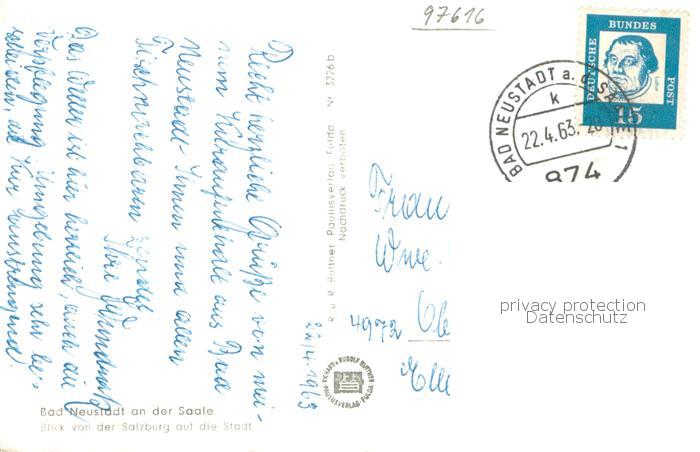 97616
DEUTSCHE
BUNDES
POST
15
BAD NEUSTADT a. d. SAALE 1
k
22.4.63. 20
874
Recht herzliche Grüße von mei-
nem Kuraufenthalt aus Bad
Neustadt Ihnen und allen
sendet
Ihre
Das Wetter ist hier herrlich, auch die
Verpflegung Umgebung sehr be-
die Kur anstrengend.
22/4.1963
R. u. R. Büttner Paulusverlag Fulda Nr. 3226 b
Nachdruck verboten
Frau
Wwe.
4972
RICHARD & RUDOLF BÜTTNER
PAULUSVERLAG FULDA
privacy protection
Datenschutz
Bad Neustadt an der Saale
Blick von der Salzburg auf die Stadt